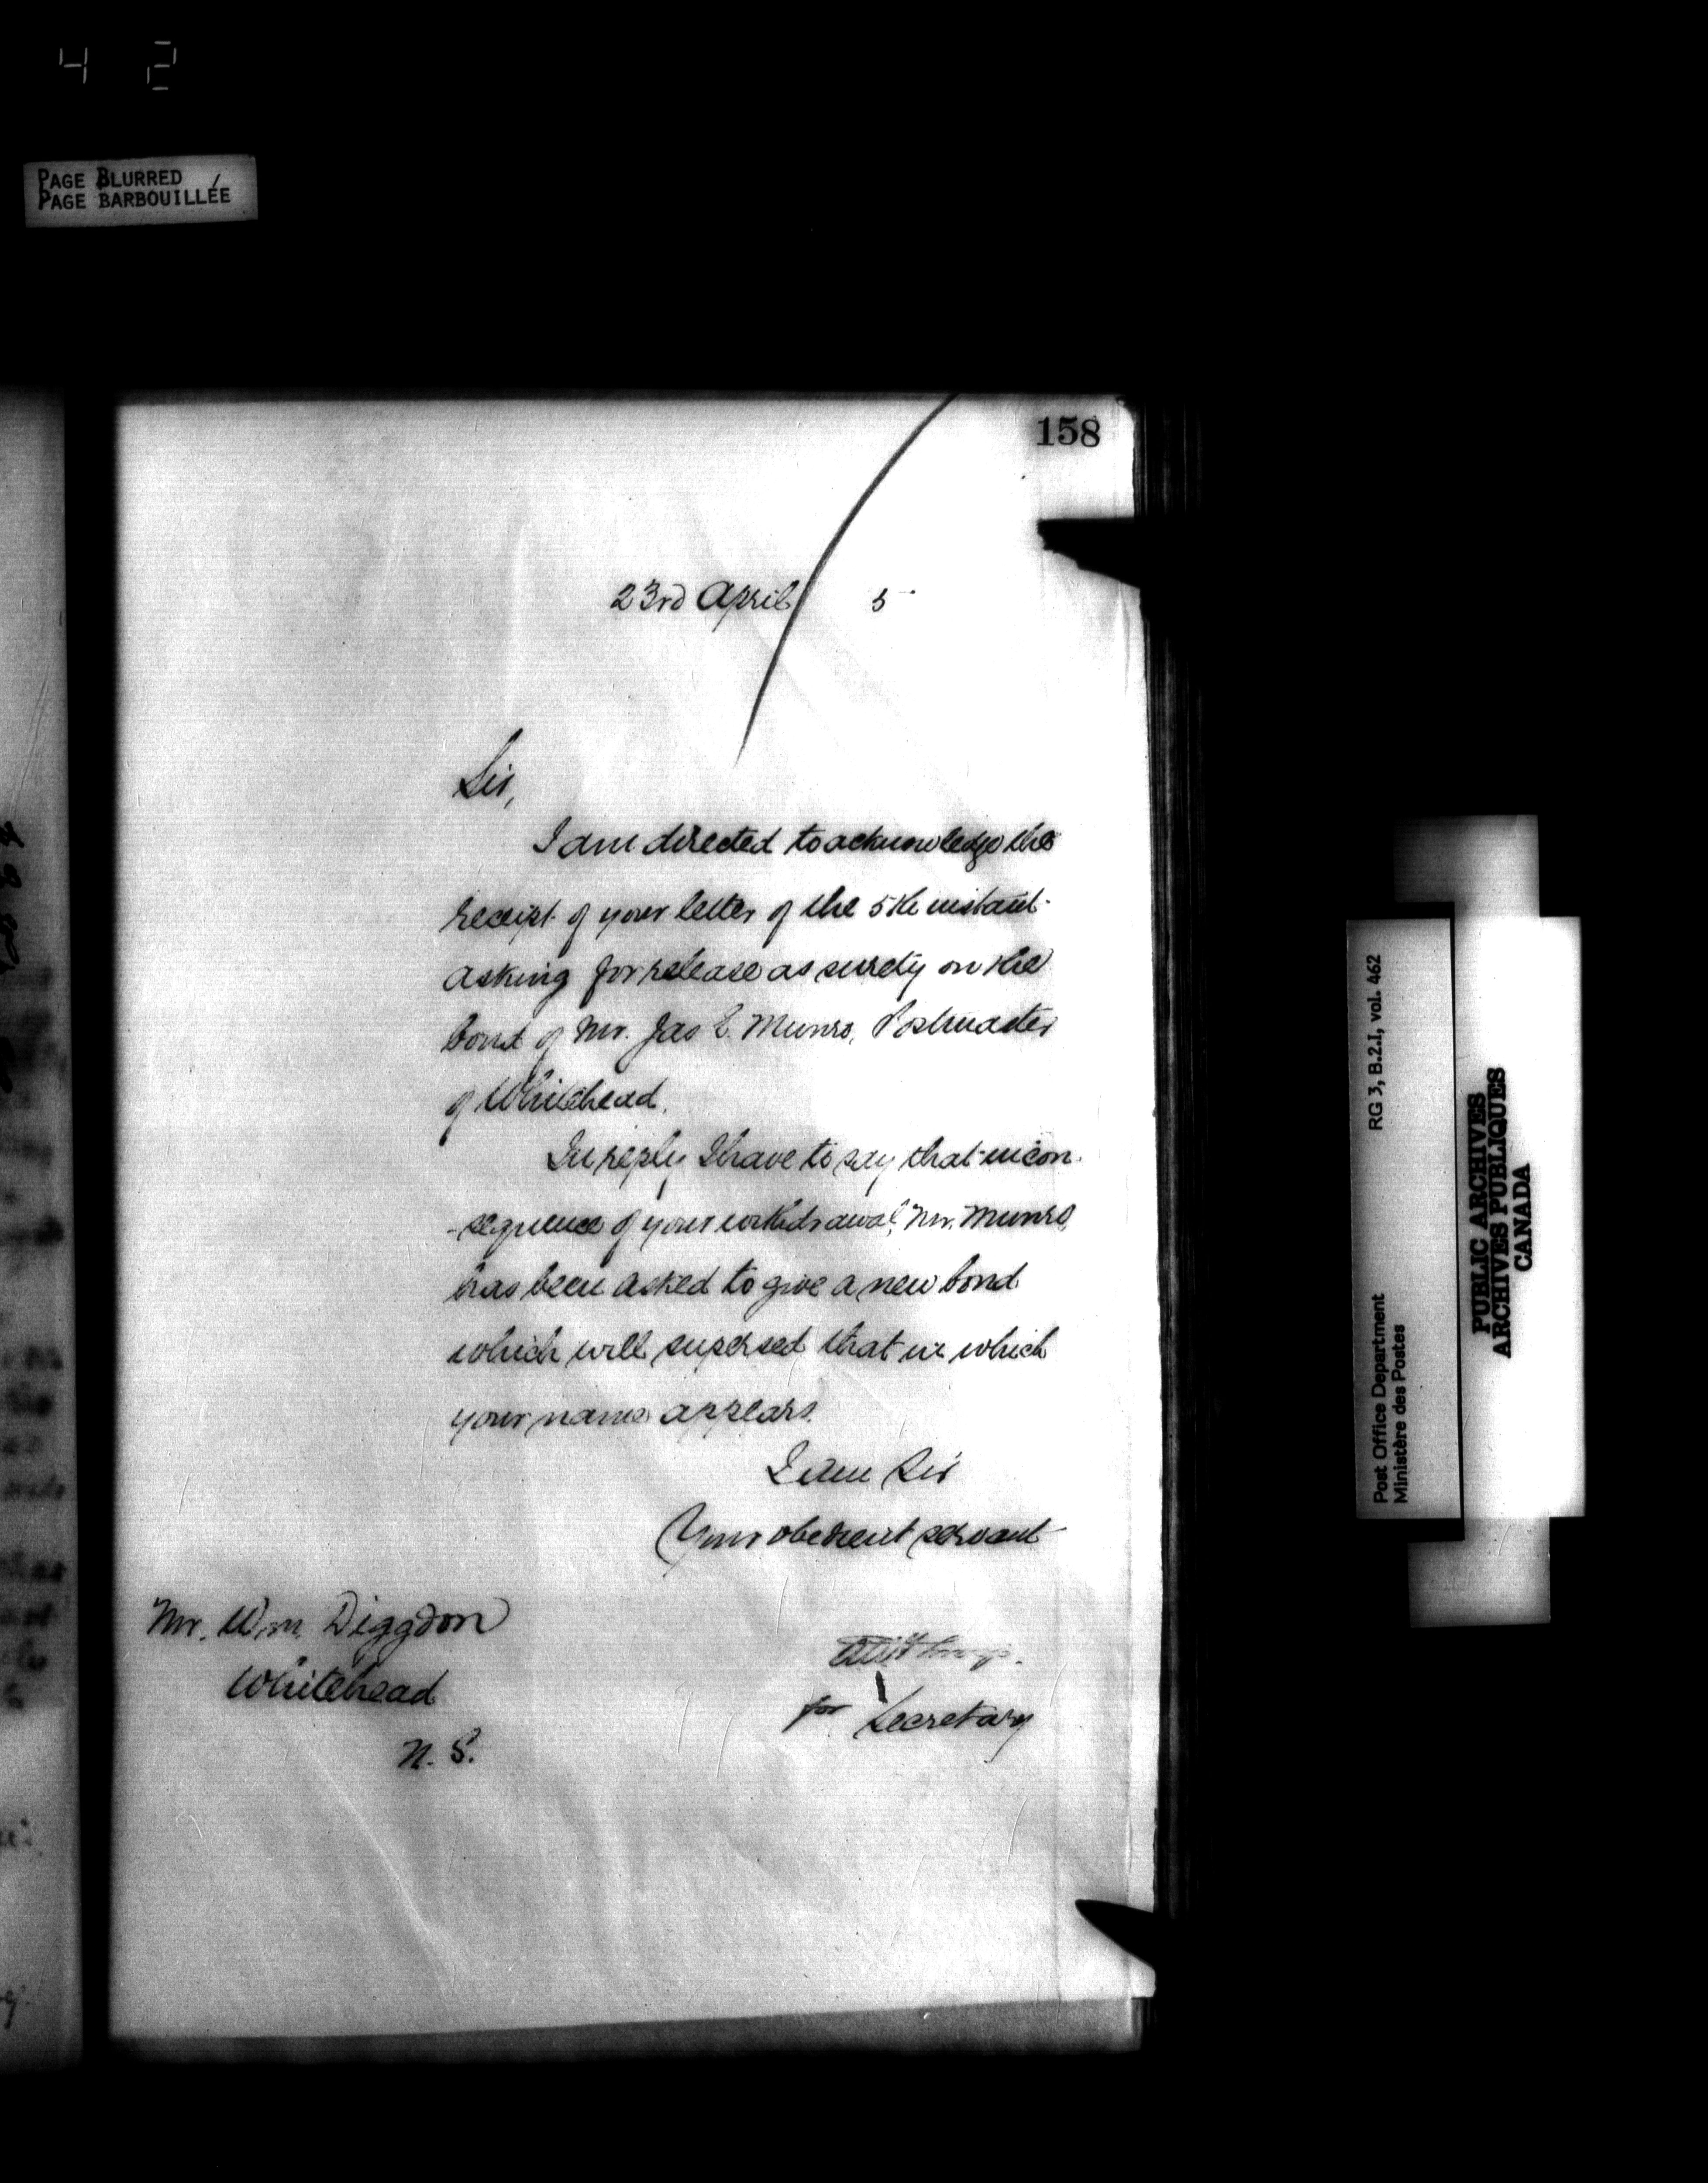 4 2
PAGE BLURRED
PAGE BARBOUILLÉE
158
23rd April 5
Sir,
I am directed to acknowledge the
receipt of your letter of the 5th instant
asking for release as surety on the
bond of Mr. Jas E. Munro, Postmaster
of Whitehead.
In reply I have to say that in con-
-sequence of your withdrawal, Mr. Munro,
has been asked to give a new bond
which will supersed that in which
your name appears.
I am Sir
Your obedient servant
for Secretary
Mr. Wm. Diggdon
Whitehead
N. S.
Post Office Department RG 3, B.2.I, vol. 462
Ministère des Postes
PUBLIC ARCHIVES
ARCHIVES PUBLIQUES
CANADA